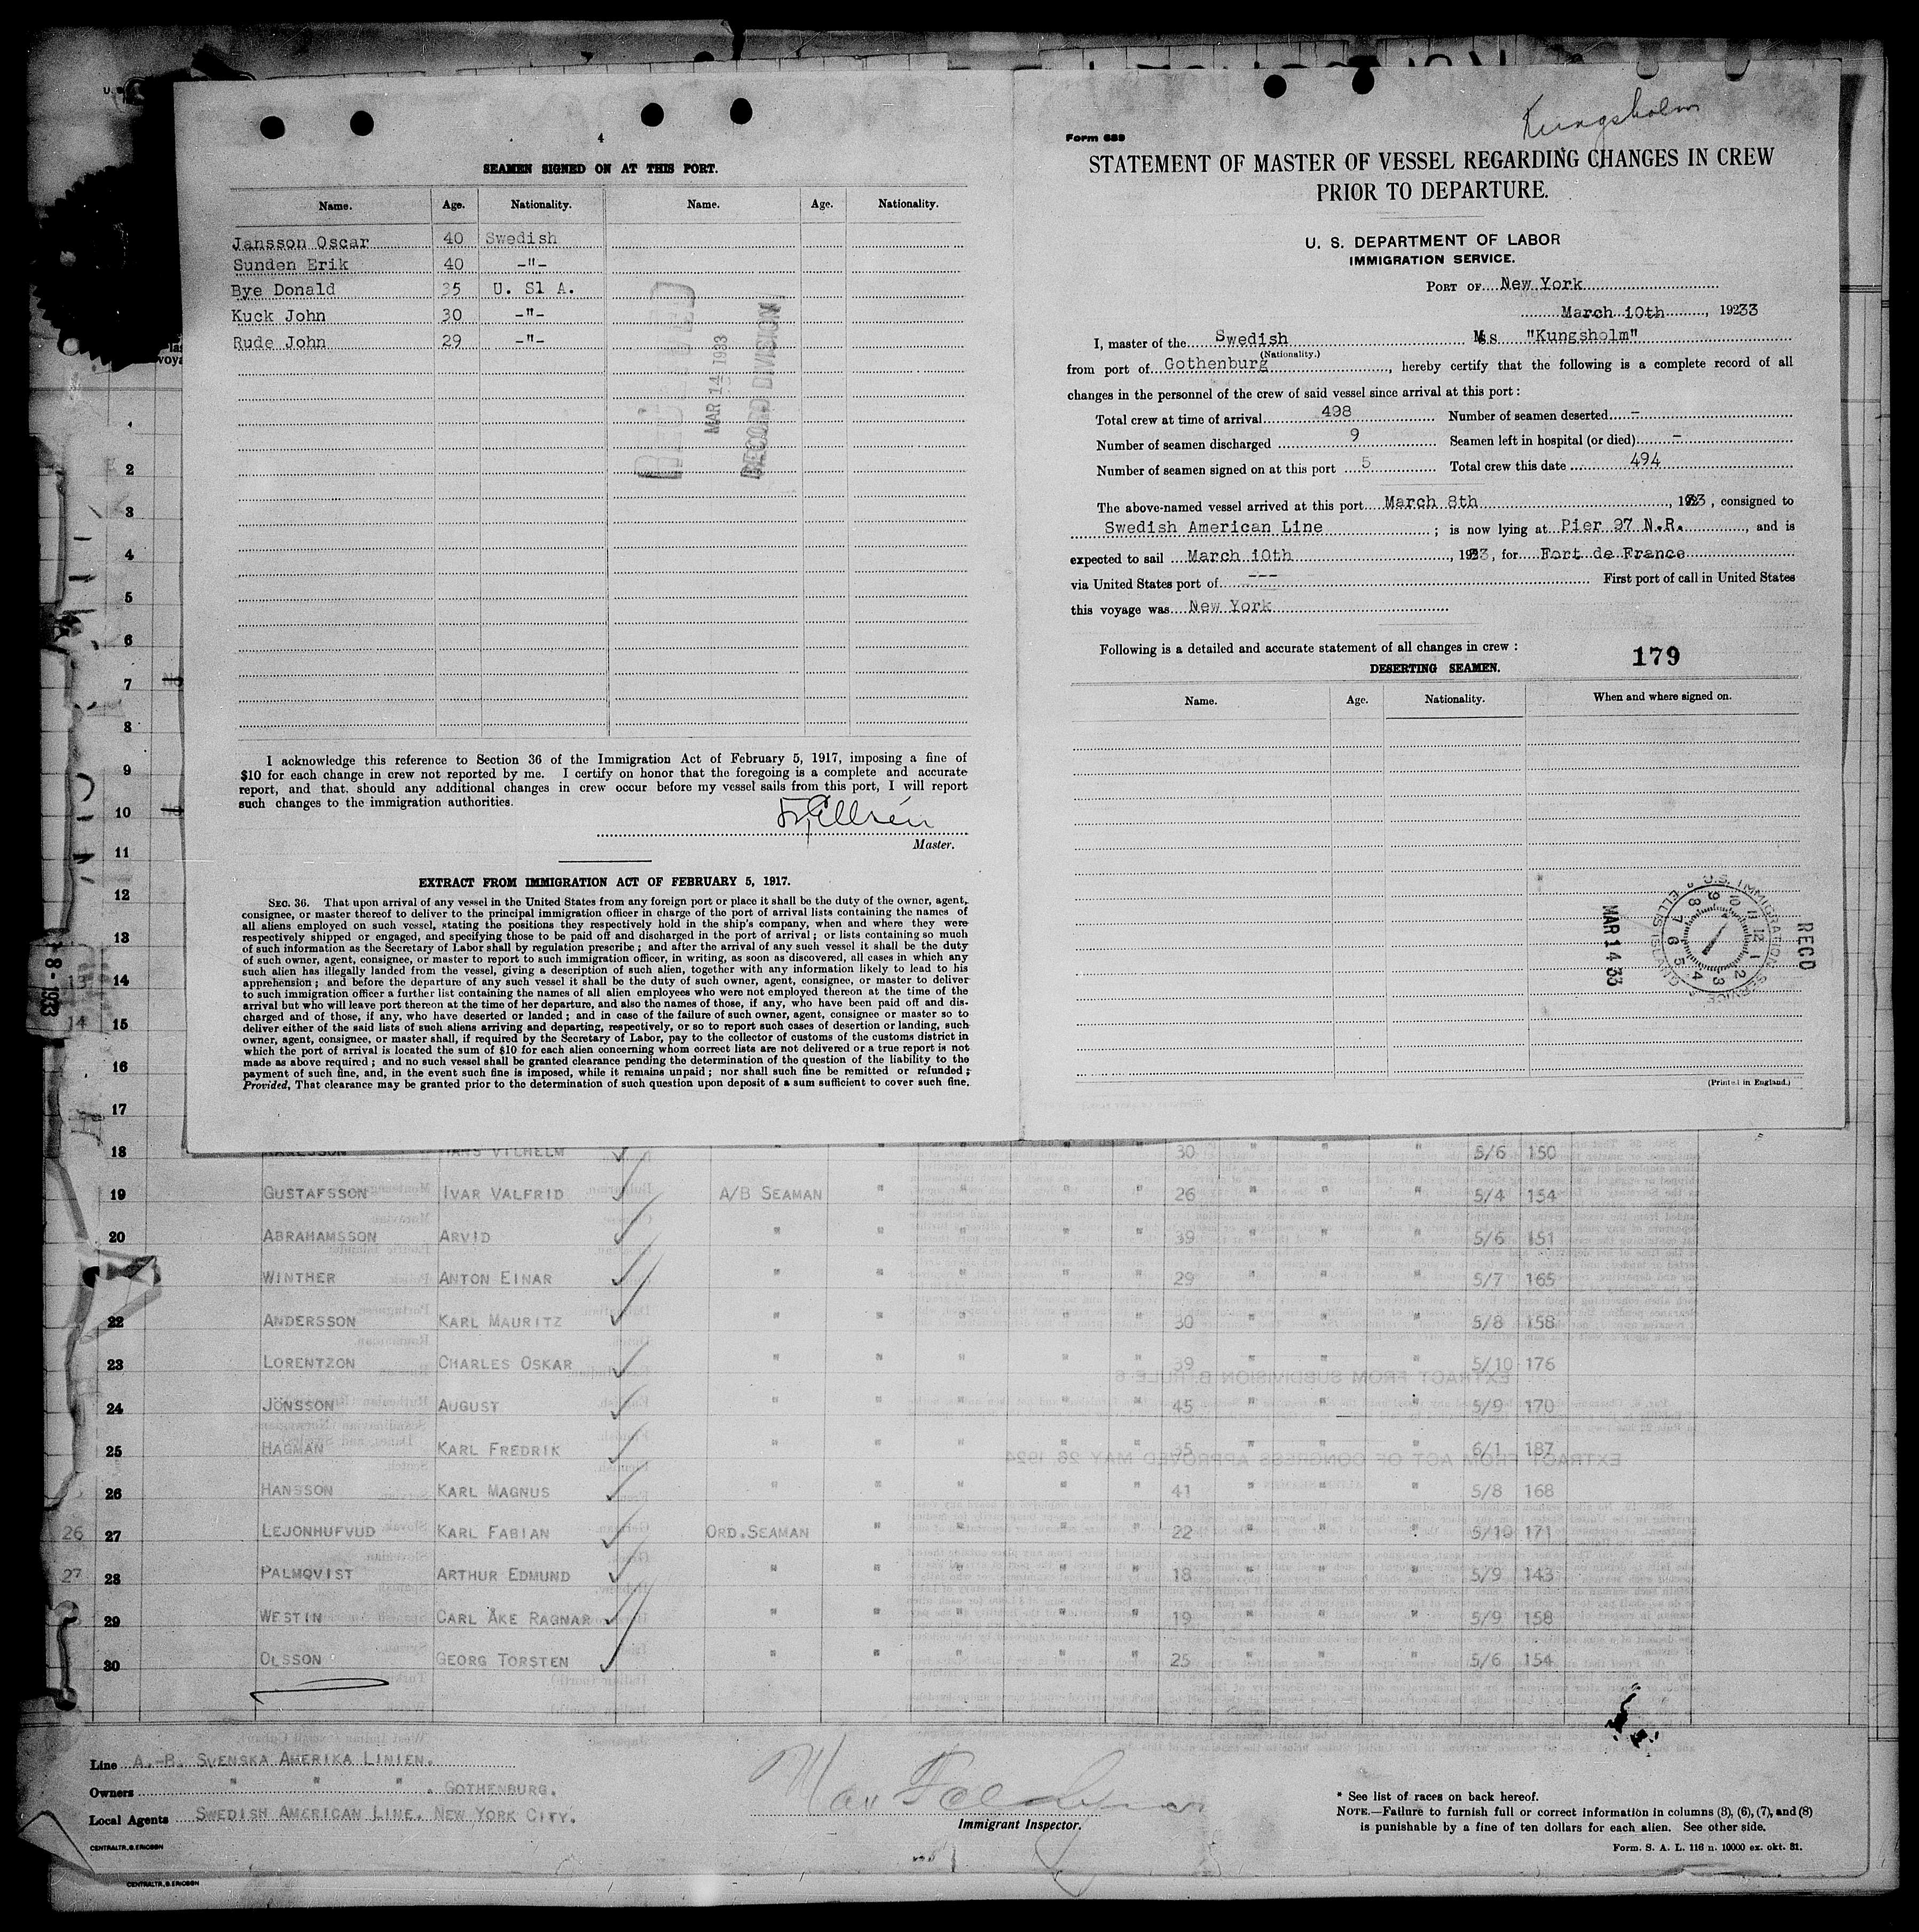 4
SEAMEN SIGNED ON AT THIS PORT.
Name. Age. Nationality. Name. Age. Nationality.
Jansson Oscar 40 Swedish
Sunden Erik 40 -"-
Bye Donald 35 U. Sl A.
Kuck John 30 -"-
Rude John 29 -"-
MAR 14 1933
RECORD DIVISION
I acknowledge this reference to Section 36 of the Immigration Act of February 5, 1917, imposing a fine of
$10 for each change in crew not reported by me. I certify on honor that the foregoing is a complete and accurate
report, and that should any additional changes in crew occur before my vessel sails from this port, I will report
such changes to the immigration authorities.
Master.
EXTRACT FROM IMMIGRATION ACT OF FEBRUARY 5, 1917.
SEC. 36. That upon arrival of any vessel in the United States from any foreign port or place it shall be the duty of the owner, agent,
consignee, or master thereof to deliver to the principal immigration officer in charge of the port of arrival lists containing the names of
all aliens employed on such vessel, stating the positions they respectively hold in the ship's company, when and where they were
respectively shipped or engaged, and specifying those to be paid off and discharged in the port of arrival; or lists containing so much
of such information as the Secretary of Labor shall by regulation prescribe; and after the arrival of any such vessel it shall be the duty
of such owner, agent, consignee, or master to report to such immigration officer, in writing, as soon as discovered, all cases in which any
such alien has illegally landed from the vessel, giving a description of such alien, together with any information likely to lead to his
apprehension; and before the departure of any such vessel it shall be the duty of such owner, agent, consignee, or master to deliver
to such immigration officer a further list containing the names of all alien employees who were not employed thereon at the time of the
arrival but who will leave port thereon at the time of her departure, and also the names of those, if any, who have been paid off and dis-
charged and of those, if any, who have deserted or landed; and in case of the failure of such owner, agent, consignee or master so to
deliver either of the said lists of such aliens arriving and departing, respectively, or so to report such cases of desertion or landing, such
owner, agent, consignee, or master shall, if required by the Secretary of Labor, pay to the collector of customs of the customs district in
which the port of arrival is located the sum of $10 for each alien concerning whom correct lists are not delivered or a true report is not
made as above required; and no such vessel shall be granted clearance pending the determination of the question of the liability to the
payment of such fine, and, in the event such fine is imposed, while it remains unpaid; nor shall such fine be remitted or refunded;
Provided, That clearance may be granted prior to the determination of such question upon deposit of a sum sufficient to cover such fine.
Kungsholm
Form 689
STATEMENT OF MASTER OF VESSEL REGARDING CHANGES IN CREW
PRIOR TO DEPARTURE.
U. S. DEPARTMENT OF LABOR
IMMIGRATION SERVICE.
PORT OF New York
March 10th, 1933
I, master of the Swedish M.S. "Kungsholm"
(Nationality.)
from port of Gothenburg, hereby certify that the following is a complete record of all
changes in the personnel of the crew of said vessel since arrival at this port:
Total crew at time of arrival 498 Number of seamen deserted -
Number of seamen discharged 9 Seamen left in hospital (or died) -
Number of seamen signed on at this port 5 Total crew this date 494
The above-named vessel arrived at this port March 8th, 1933, consigned to
Swedish American Line; is now lying at Pier 97 N.R., and is
expected to sail March 10th, 1933, for Fort de France
via United States port of --- First port of call in United States
this voyage was New York
Following is a detailed and accurate statement of all changes in crew:
179
DESERTING SEAMEN.
Name. Age. Nationality. When and where signed on.
RECD
U.S. IMMIGRATION SERVICE ELLIS ISLAND
MAR 14 33
(Printed in England.)
1933
2
3
4
5
6
7
8
9
10
11
12
13
14
15
16
17
18 VILHELM 30 " " " 5/6 150
19 GUSTAFSSON IVAR VALFRID A/B SEAMAN " " " " 26 " " " 5/4 154
20 ABRAHAMSSON ARVID " " " " " 39 " " " 5/6 151
WINTHER ANTON EINAR " " " " " 29 " " " 5/7 165
22 ANDERSSON KARL MAURITZ " " " " " 30 " " " 5/8 158
23 LORENTZON CHARLES OSKAR " " " " " 39 " " " 5/10 176
24 JÖNSSON AUGUST " " " " " 45 " " " 5/9 170
25 HAGMAN KARL FREDRIK " " " " " 35 " " " 6/1 187
26 HANSSON KARL MAGNUS " " " " " 41 " " " 5/8 168
26 27 LEJONHUFVUD KARL FABIAN ORD.SEAMAN " " " " 22 " " " 5/10 171
27 28 PALMQVIST ARTHUR EDMUND " " " " " 18 " " " 5/9 143
29 WESTIN CARL ÅKE RAGNAR " " " " " 19 " " " 5/9 158
30 OLSSON GEORG TORSTEN " " " " " 25 " " " 5/6 154
Line A.-B. SVENSKA AMERIKA LINIEN.
Owners " " " . GOTHENBURG.
Local Agents SWEDISH AMERICAN LINE. NEW YORK CITY.
CENTRALTR., G. ERICSON
CENTRALTR., G. ERICSON
Immigrant Inspector.
* See list of races on back hereof.
NOTE.—Failure to furnish full or correct information in columns (3), (6), (7), and (8)
is punishable by a fine of ten dollars for each alien. See other side.
Form. S. A. L. 116 n. 10000 ex. okt. 31.